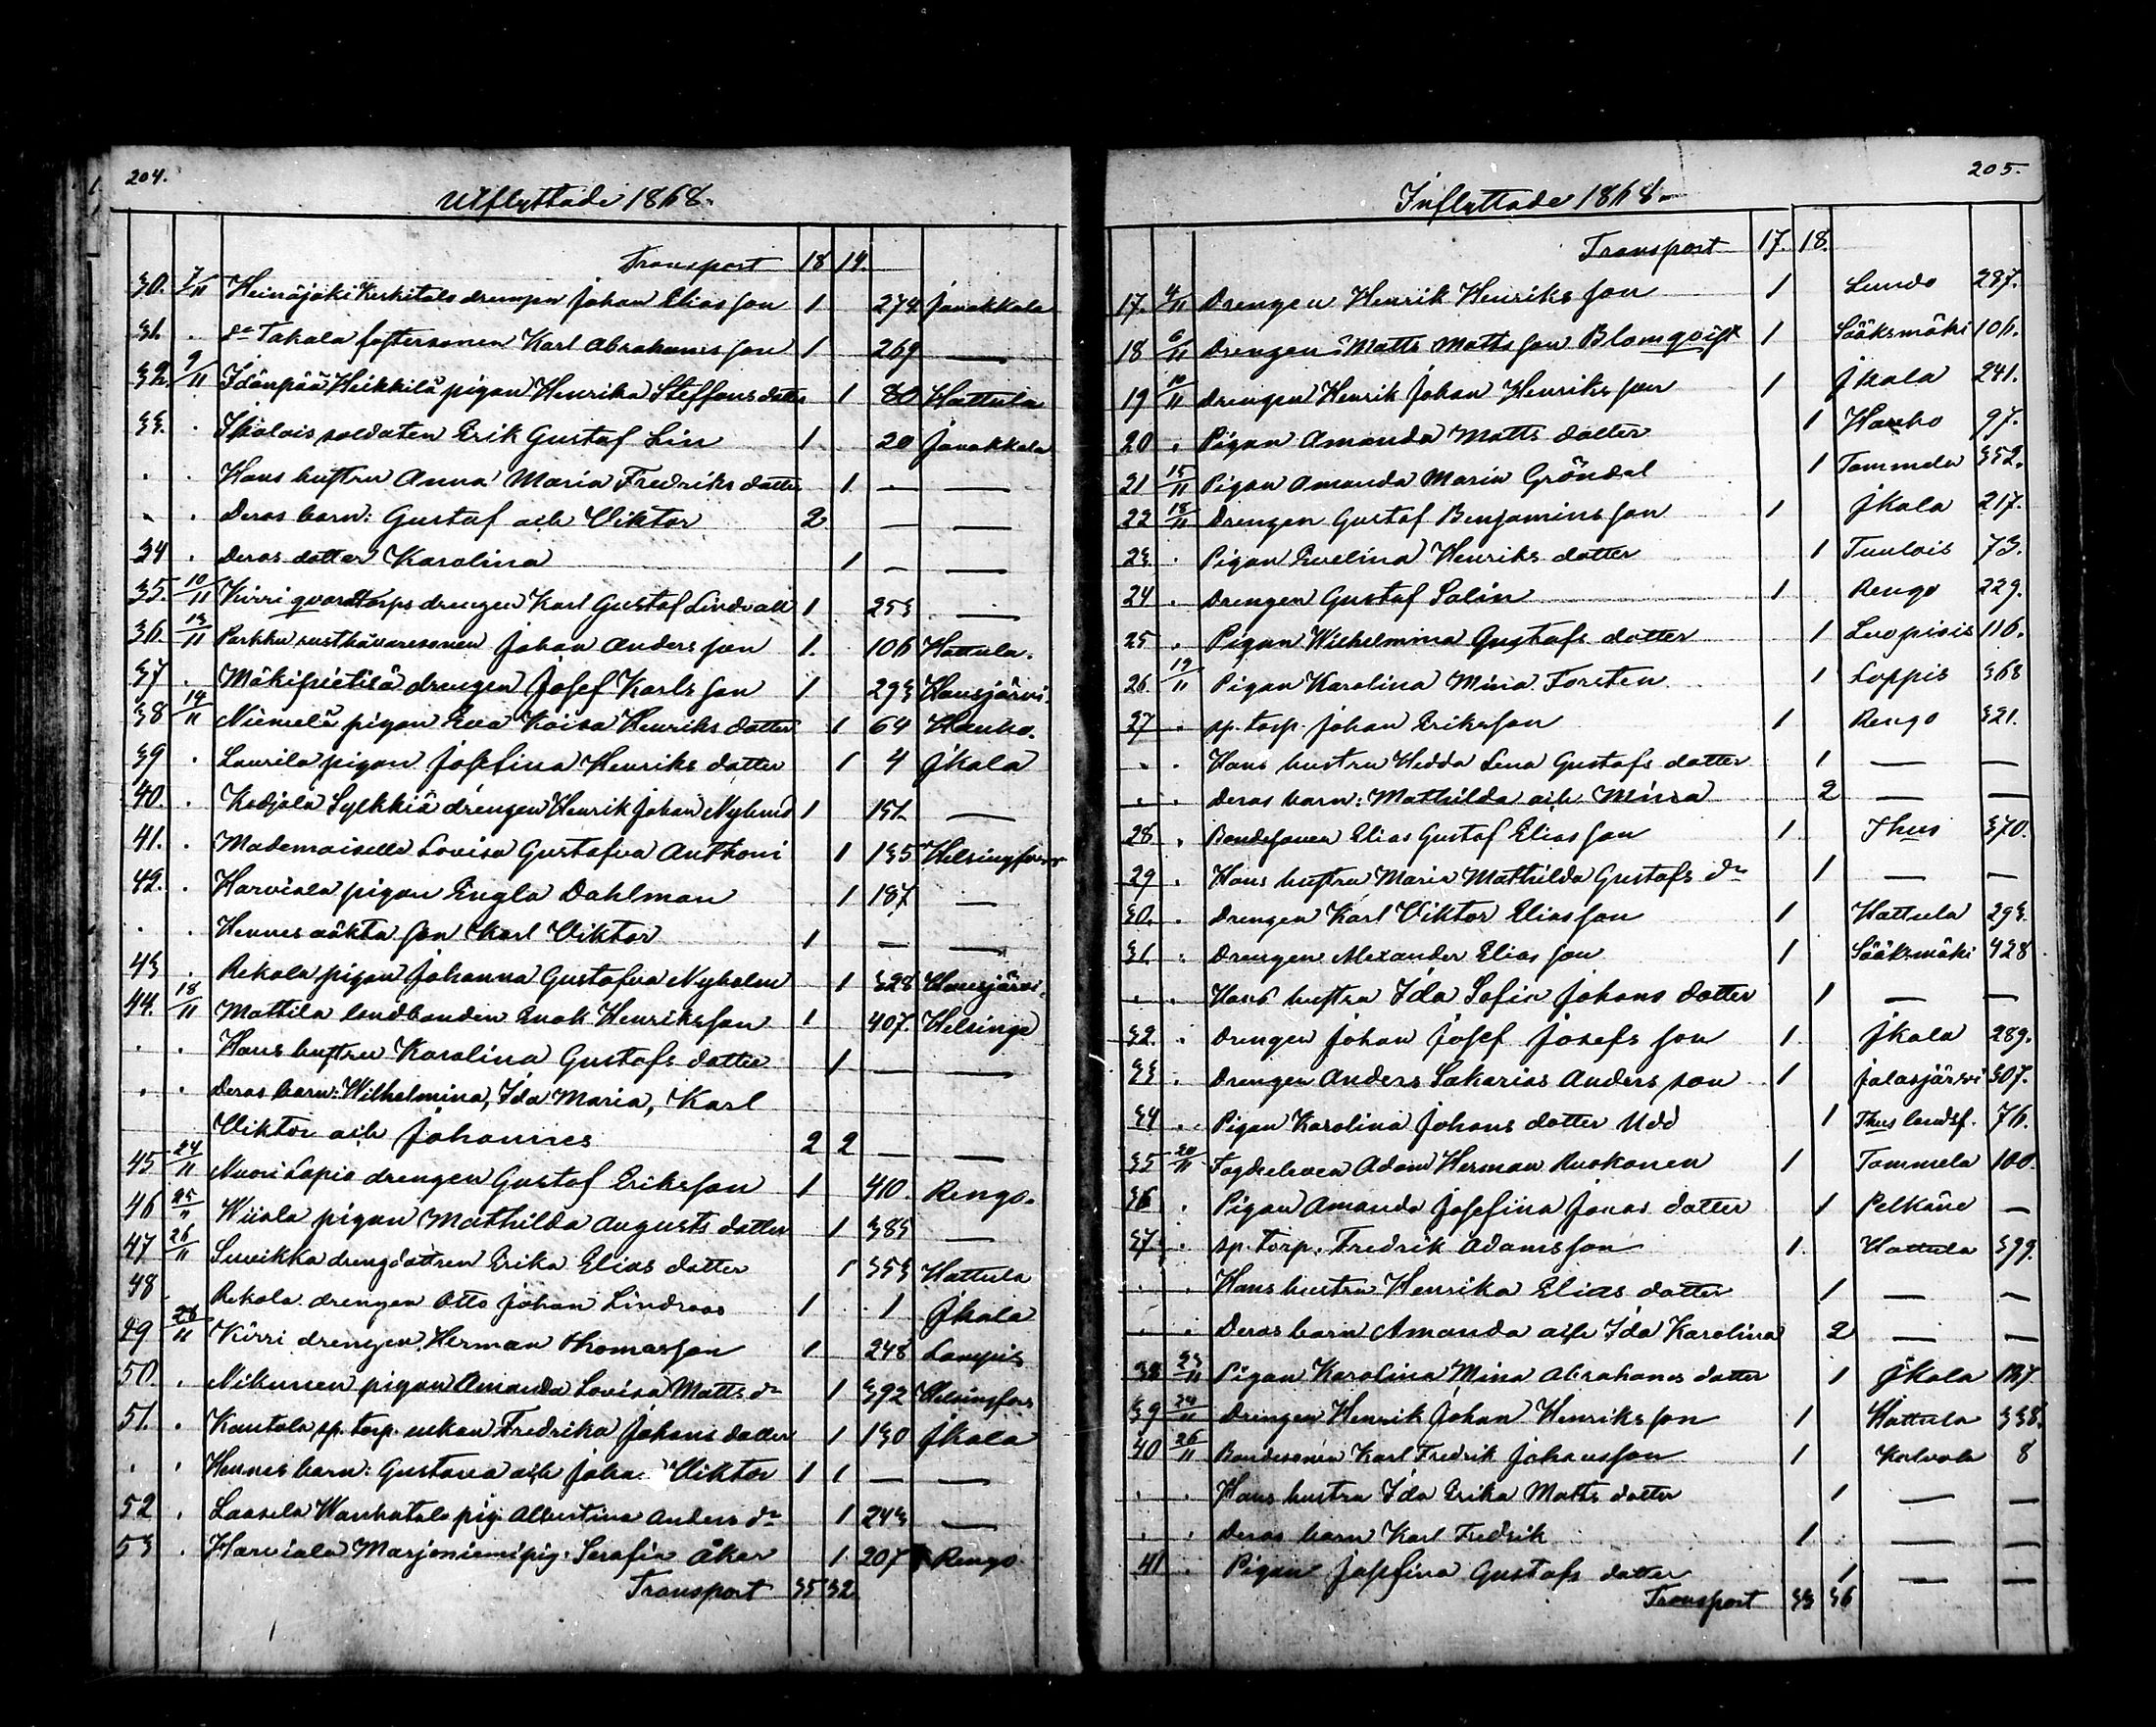 204.
Utflyttade 1868.
Transport 18 19.
30. 7/11 Heinäjoki Kerkitalo drengen Johan Eliasson 1 274 Janakkala
31. . do Takala fostersonen Karl Abrahamsson 1 269 —
32. 9/11 Idänpää Heikkilä pigan Henrika Steffansdotter 1 80 Hattula
33. . soldaten Erik Gustaf Lin 1 20 Janakkala
. . Hans hustru Anna Maria Fredriksdotter 1 — —
. . Deras barn: Gustaf och Viktor 2 — —
34 . Deras dotter Karolina 1 — —
35. 10/11 Kirri qvarntorps drengen Karl Gustaf Lindvall 1 253 —
36. 13/11 Parkku rusthållaresonen Johan Andersson 1. 106 Hattula.
37 . Mäkipietilä drengen Josef Karlsson 1 293 Hausjärvi.
38 14/11 Niemelä pigan Eva Kaisa Henriksdotter 1 64 Hauho.
39 . Laurila pigan Josefina Henriksdotter 1 4 Jkala
40. . Kodjala Sylkkiä drengen Henrik Johan Nylund 1 —
41. . Mademoiselle Lovisa Gustafva Anthoni 1 135 Helsingfors
42. . Harviala pigan Engla Dahlman 1 187 —
. . Hennes oäkta son Karl Viktor 1 — —
43 . Rekola pigan Johanna Gustafva Nyholm 1 328 Hausjärvi.
44. 18/11 Mattila landbonden Enok Henriksson 1 407. Helsinge
. . Hans hustru Karolina Gustafsdotter 1 — —
. . Deras barn: Wilhelmina, Ida Maria, Karl
Viktor och Johannes 2 2 — —
45 24/11 Nuori Lapio drengen Gustaf Eriksson 1 410. Rengo.
46 25/11 Wiiala pigan Mathilda Augustsdotter 1 383 —
47 26/11 drengdottren Erika Eliasdotter 1 353 Hattula
48 . Rekola drengen Otto Johan Lindroos 1 . 1 Jkala
49 28/11 Kirri drengen Herman Thomasson 1. 248 Lampis
50. . Nikunen pigan Amanda Lovisa Matts dr 1 392 Helsingfors
51. . Kantola sp. torp. enkan Fredrika Johansdotter 1 130 Jkala
. . Hennes barn: Gustava och Joha. Viktor 1 1 — —
52 . Laasela Wanhatalo pig. Albertina Anders dr 1 243 —
53 . Harviala Marjoniemi pig. Serafia Åker 1 207 Rengo
Transport 35 32
205.
Inflyttade 1868.
Transport 17. 18.
17. 4/11 Drengen Henrik Henriksson 1 Lundo 287.
18 6/11 Drengen Matts Mattsson Blomqvist 1 Sääksmäki 106.
19 10/11 Drengen Henrik Johan Henriksson 1 Jkala 241.
20 . Pigan Amanda Mattsdotter 1 Hauho 97.
21 15/11 Pigan Amanda Maria Gröndal 1 Tammela 352.
22 18/11 Drengen Gustaf Benjaminsson 1 Jkala 217.
23. . Pigan Evelina Henriksdotter 1 Tuulois 73.
24 . Drengen Gustaf Salin 1 Rengo 229.
25 . Pigan Wilhelmina Gustafsdotter 1 Luopiois 116.
26. 19/11 Pigan Karolina Mina Forsten 1 Loppis 368
27 . sp. torp. Johan Eriksson 1 Rengo 321.
. . Hans hustru Hedda Lena Gustafsdotter 1 — —
. . Deras barn: Mathilda och Minna 2 — —
28. . Bondesonen Elias Gustaf Eliasson 1 Thus 370.
29 . Hans hustru Maria Mathilda Gustafs dr 1 — —
30. . Drengen Karl Viktor Eliasson 1 Hattula 293.
31. . Drengen Alexander Eliasson 1 Sääksmäki 428
. . Hans hustru Ida Sofia Johansdotter 1 — —
32. . Drengen Johan Josef Josefsson 1. Jkala 289.
33 . Drengen Anders Sakarias Andersson 1 Jalasjärvi 307.
34 . Pigan Karolina Johansdotter Udd 1 Thus landsf. 76.
35 20/11 Adam Herman Ruskonen 1 Tammela 100.
36 . Pigan Amanda Josefina Jonasdotter 1 Pelkäne —
37 . sp. torp. Fredrik Adamsson 1. Hattula 399.
. . Hans hustru Henrika Eliasdotter 1 — —
. . Deras barn Amanda och Ida Karolina 2 — —
38 23/11 Pigan Karolina Mina Abrahamsdotter 1 Jkala
39 24/11 Drengen Henrik Johan Henriksson 1 Hattula 338.
40 26/11 Bondesonen Karl Fredrik Johansson 1 Kalvola 8
. . Hans hustru Ida Erika Mattsdotter 1 — —
. . Deras barn Karl Fredrik 1. — —
41 . Pigan Josefina Gustafsdotter 1 — —
Transport 33 36